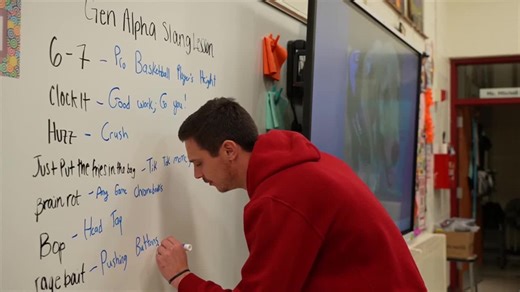 Gen Alpha Slang Lesson
6-7 - Pro Basketball Player's Height
Clock It - Good work, Go you!
Huzz - Crush
Just Put the fries in the bag - Tik Tok meme
Brain rot - Any Game Chromebooks
Bop - Head Tap
rage bait - Pushing Buttons